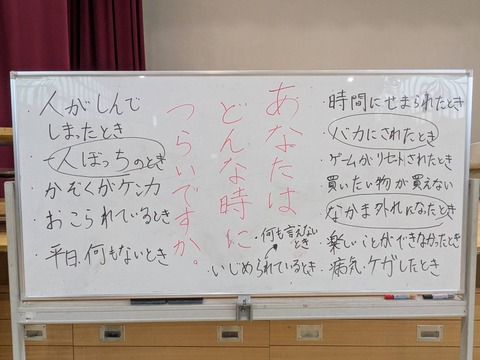 あなたは
どんな時に
つらいですか。
・時間にせまられたとき
・バカにされたとき
・ゲームがリセットされたとき
・買いたい物が買えない
・なかま外れになったとき
・楽しいことができなかったとき
・病気・ケガしたとき
・何も言えないとき
・いじめられているとき
・人がしんで
しまったとき
・一人ぼっちのとき
・かぞくがケンカ
・おこられているとき
・平日、何もないとき